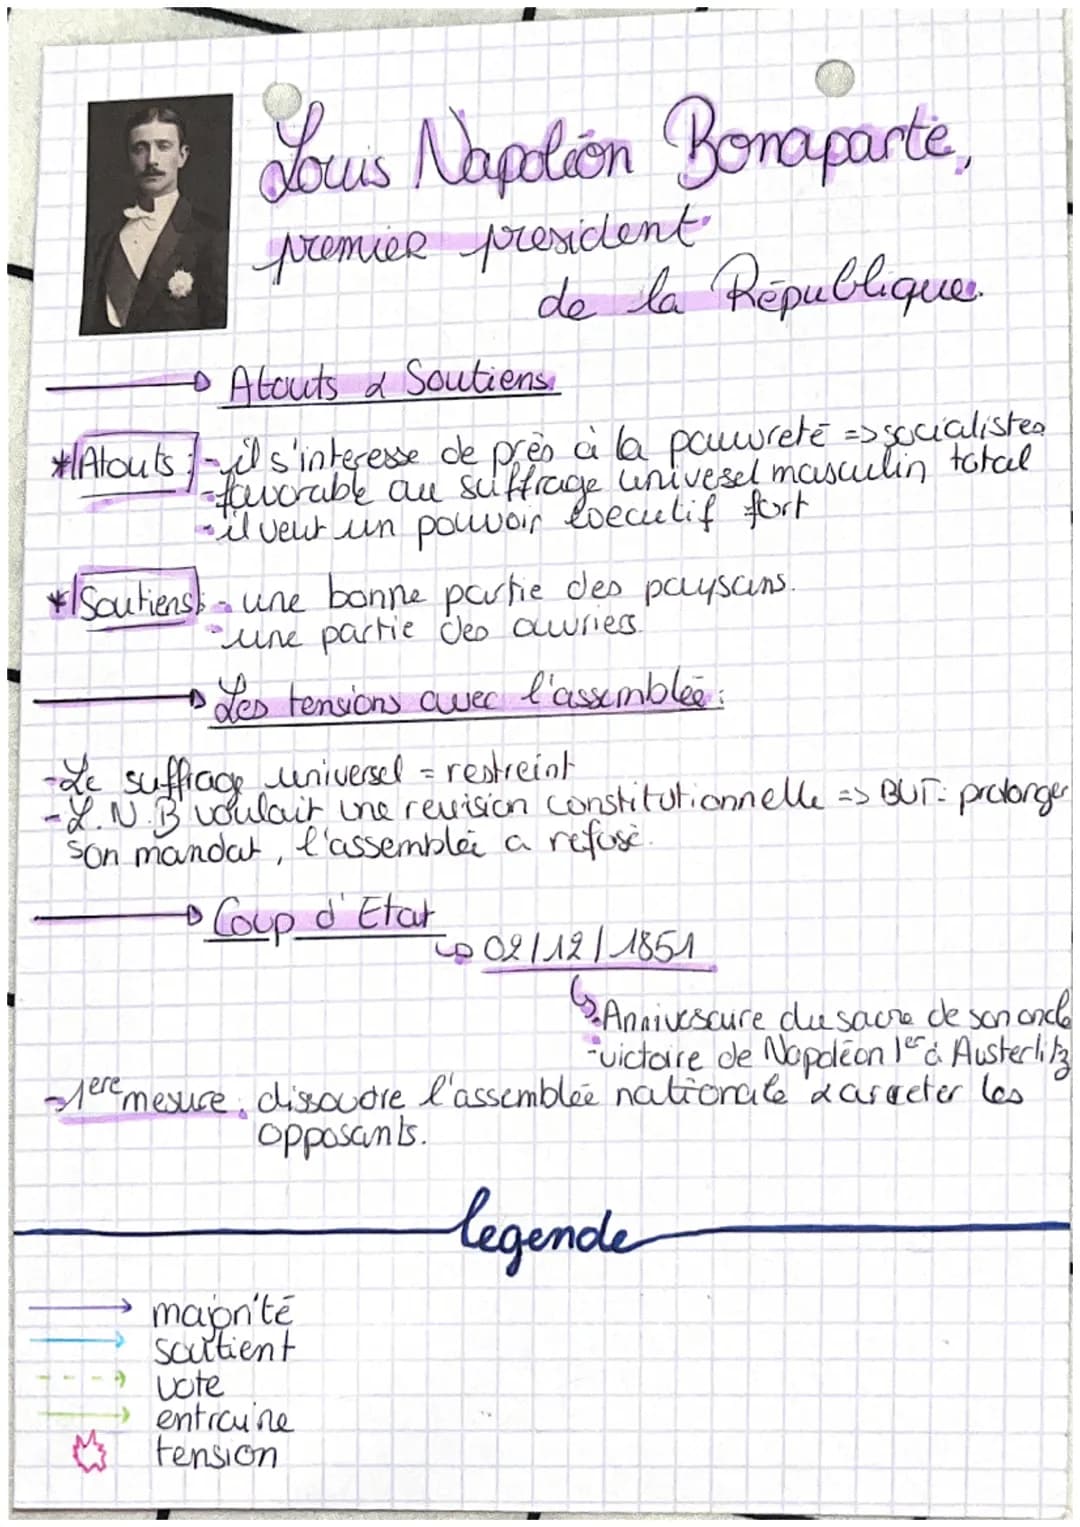 Louis Napoléon Bonaparte,
premier president
de la République.
Atouts & Soutiens:
* Atouts : - il s'interesse de près à la pauvreté => socialistes
- favorable au suffrage univesel masculin total
- il veut un pouvoir executif fort
* Soutiens : - une bonne partie des paysans.
- une partie des ouvriers.
Les tensions avec l'assemblée :
- Le suffrage universel = restreint
- L.N.B voulait une revision constitutionnelle => BUT: prolonger
son mandat, l'assemblée a refusé.
Coup d'Etat
02/12/1851
- Anniversaire du sacre de son oncle
- victoire de Napoléon 1er à Austerlitz
- 1ere mesure : dissoudre l'assemblée nationale & arreter les
opposants.
legende
majorité
soutient
vote
entraine
tension